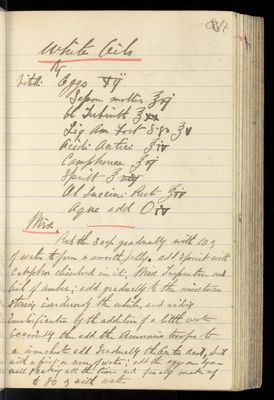 White Oils
Rx
Vitelli Eggs
Sapon mollis ʒ vj
Ol Terebinth ʒ xx
Liq Am Fort ʒ v
Acidi Acetici ʒ iv
Camphorae ʒ vj
Spirit ʒ
Ol Succini Rect ʒ iv
Aquae add O iv
Mix
Rub the soap gradually with 10 ʒ
of water to form a smooth jelly. add spirit with
camphor dissolved in it. Mix Turpentine and
Oil of amber; add gradually to the mixture
stirring the whole, and aiding
Emulsification by the addition of a little water
occasionally then add the Ammonia
add gradually the acetic acid,
with a pint or more of water; add the eggs
well shaking all the time and finally make up
to 80 ʒ with water